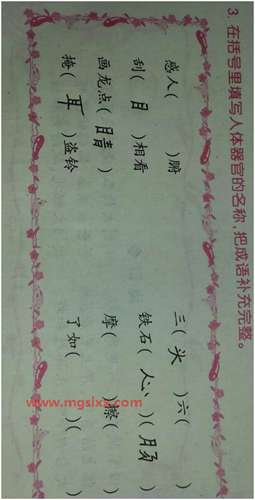 3. 在括号里填写人体器官的名称,把成语补充完整。
感人( )腑 三(头)六( )
刮(目)相看 铁石(心)(肠)
画龙点(睛) 摩( )擦( )
掩(耳)盗铃 了如( )( )
www.mgsixs.com